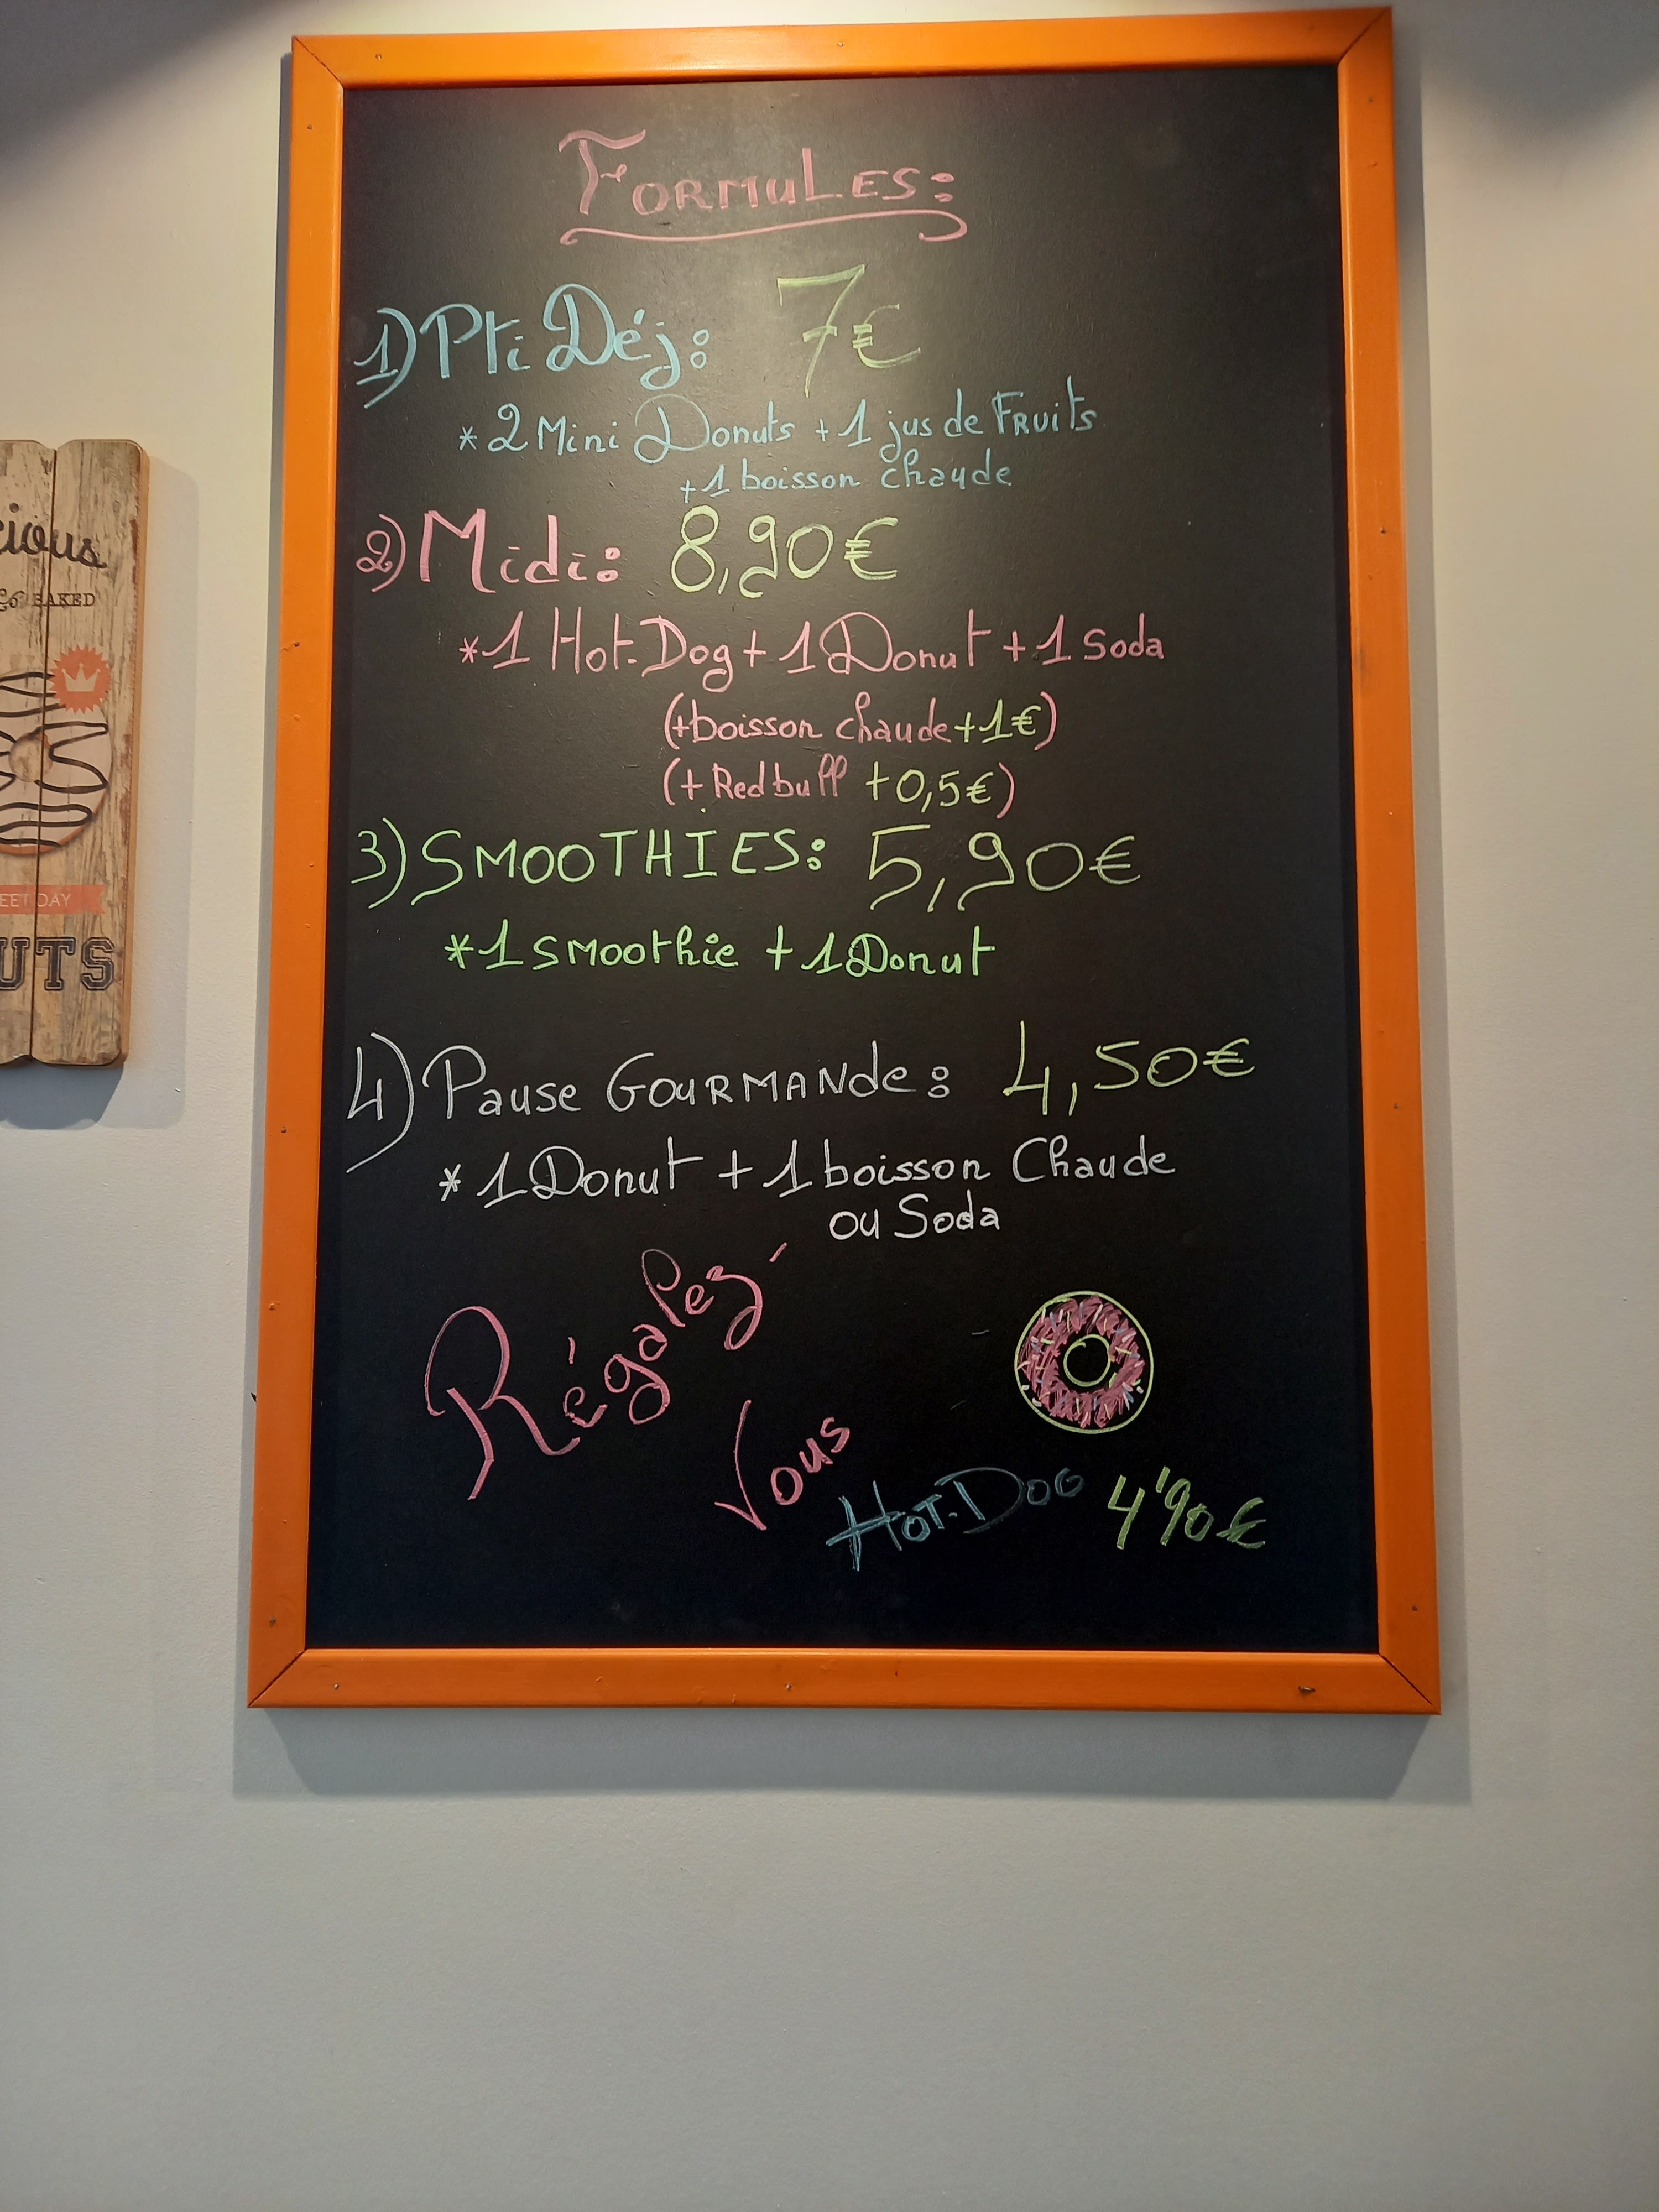 Formules:
1) Pti Déj: 7€
* 2 Mini Donuts + 1 jus de Fruits
+ 1 boisson chaude
2) Midi: 8,90€
* 1 Hot-Dog + 1 Donut + 1 Soda
(+boisson chaude +1€)
(+ Redbull +0,5€)
3) SMOOTHIES: 5,90€
* 1 smoothie + 1 Donut
4) Pause Gourmande: 4,50€
* 1 Donut + 1 boisson Chaude
ou Soda
Régalez-
Vous
Hot-Dog 4'90€
cious
BAKED
EET DAY
UTS